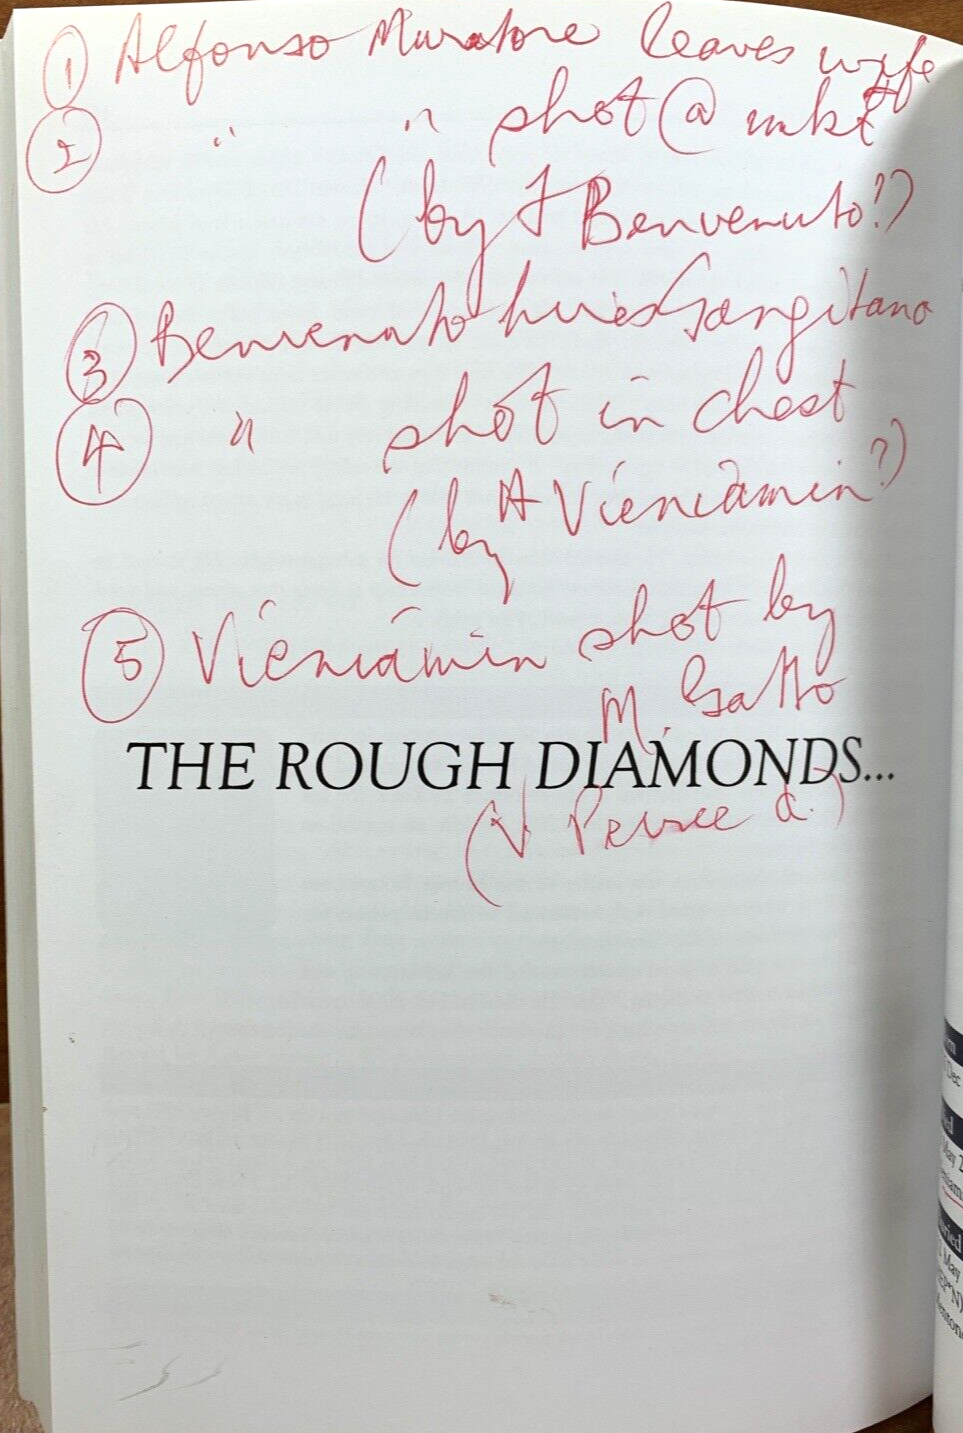 ① Alfonso Muratore leaves wife
② " " shot @ mkt
(by F Benvenuto?)
③ Benvenuto hires Gangitano
④ " shot in chest
(by A Vieniamin?)
⑤ Vieniamin shot by
M. Gatto
THE ROUGH DIAMONDS...
(V. Peirce d.)